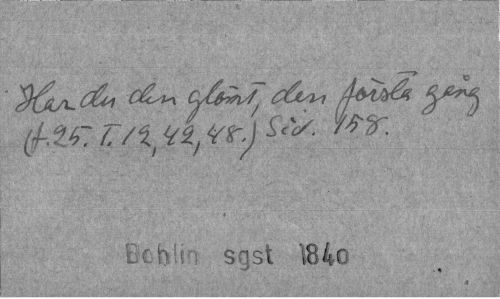 Har du den glömt, den första gång
(t. 25. T. 12, 42, 48.) Sid. 158.
Bohlin sgst 1840